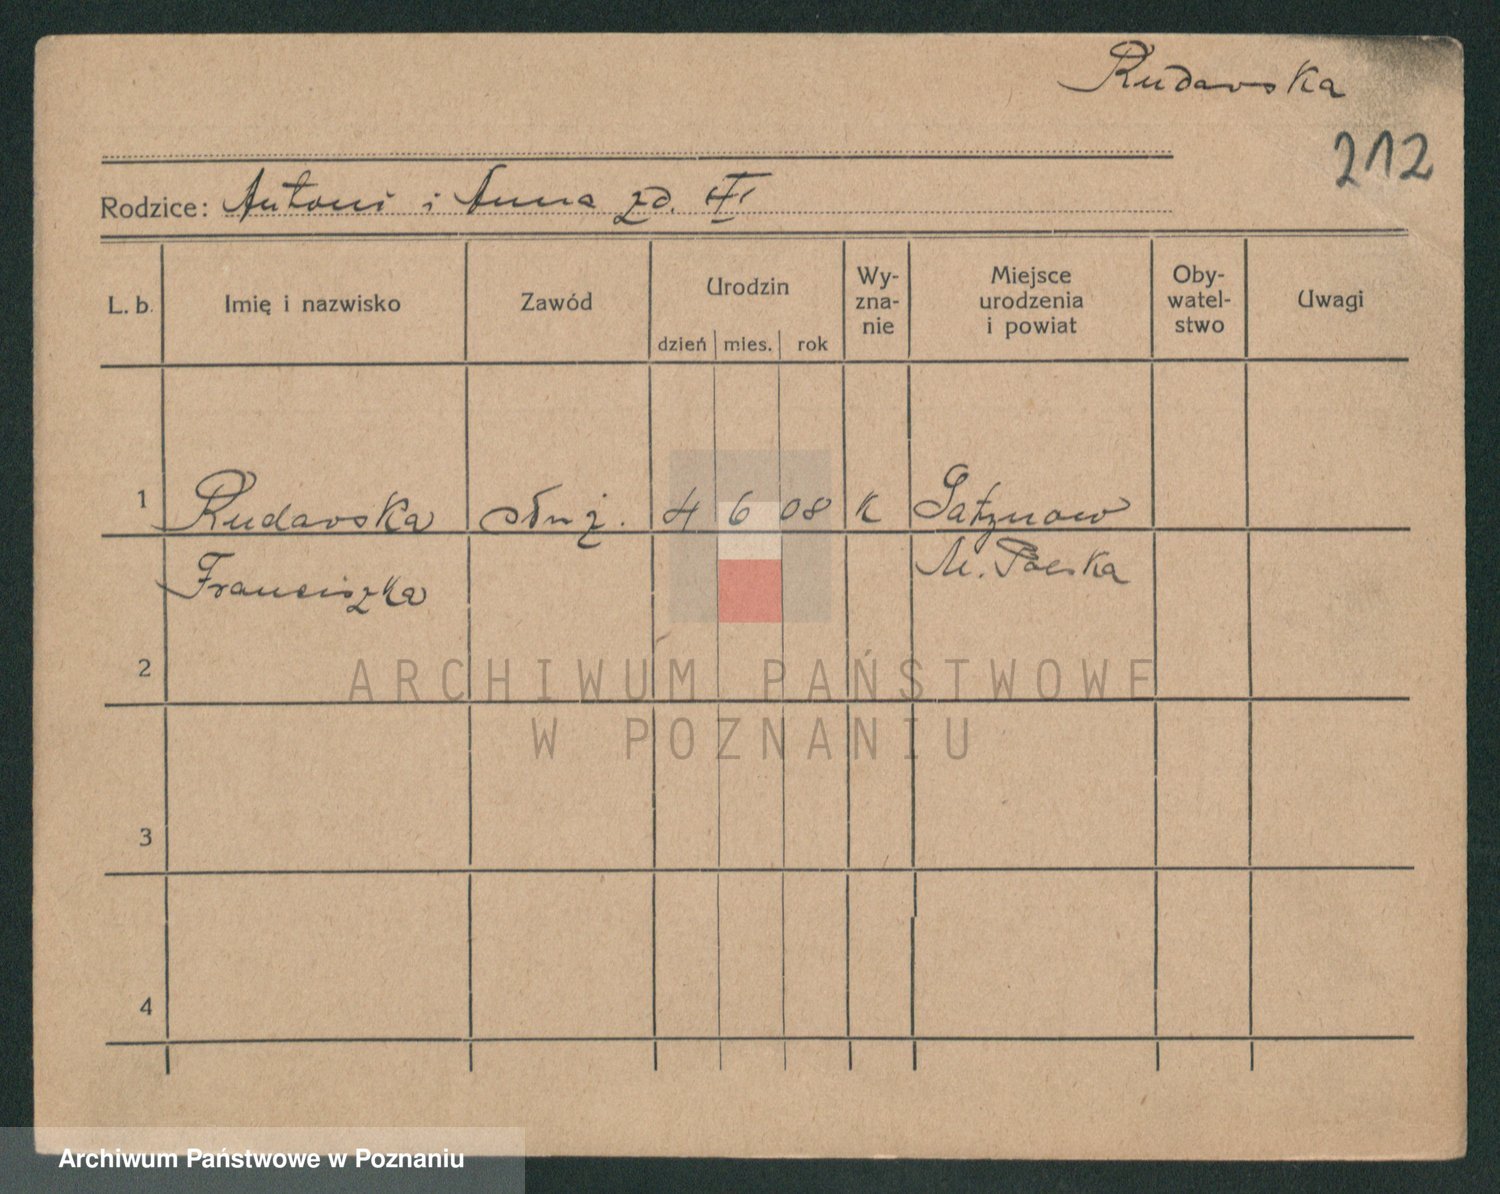 Rudavska
212
Rodzice: Antoni i Anna zd.
L. b. Imię i nazwisko Zawód Urodzin Wy-zna-nie Miejsce urodzenia i powiat Oby-watel-stwo Uwagi
dzień mies. rok
1 Rudavska służ. 4 6 08 K
Franciszka M. Polska
2
3
4
ARCHIWUM PAŃSTWOWE
W POZNANIU
Archiwum Państwowe w Poznaniu